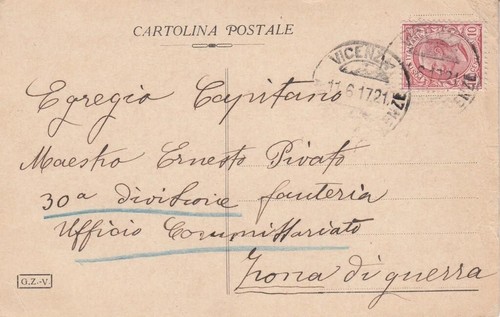 CARTOLINA POSTALE
VICENZA
11.6.17.21
Egregio Capitano
Maestro Ernesto Pivato
30ª divisione fanteria
Ufficio Commissariato
Zona di guerra
G.Z.-V.